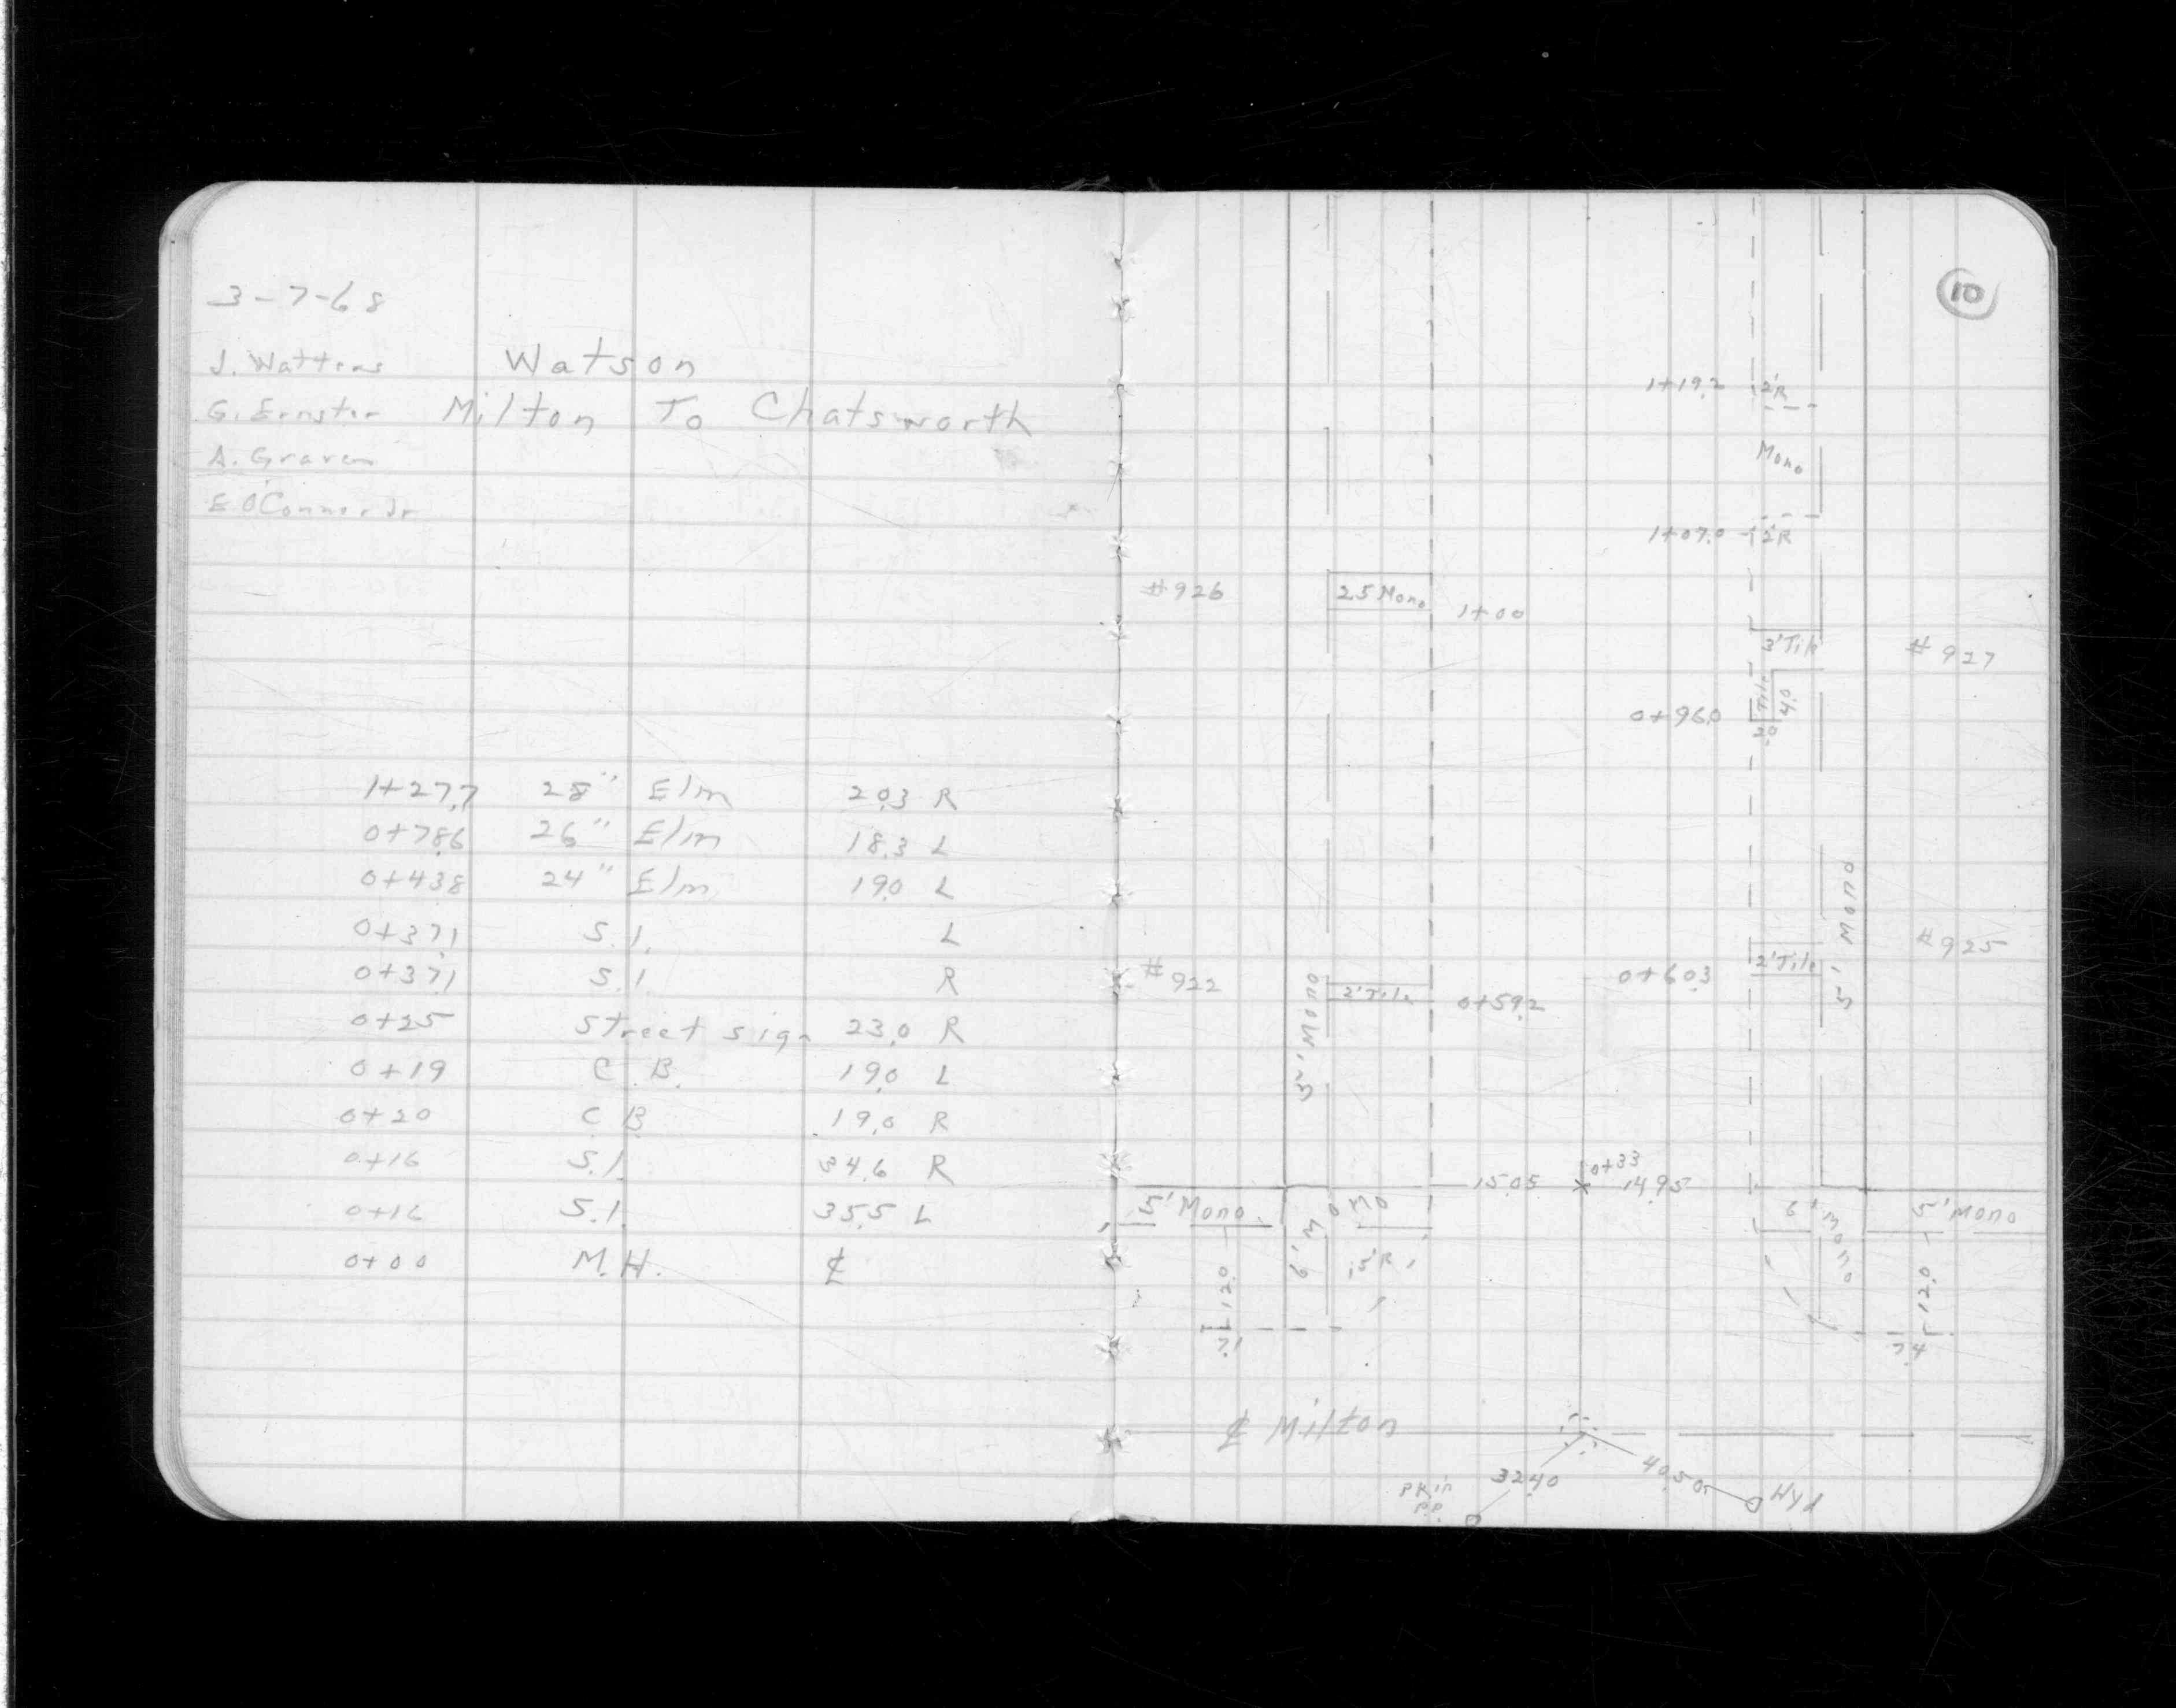 3-7-68
J. Watters Watson
G. Ernster Milton To Chatsworth
A. Graven
E O'Connor Jr
1+27.7 28" Elm 20.3 R
0+78.6 26" Elm 18.3 L
0+43.8 24" Elm 19.0 L
0+37.1 S.I. L
0+37.1 S.I. R
0+25 Street sign 23.0 R
0+19 C.B. 19.0 L
0+20 C B 19.0 R
0+16 S.I. 34.6 R
0+16 S.I. 35.5 L
0+00 M.H. ℄
10
1+19.2 2'R
Mono
1+07.0 2'R
#926 2.5 Mono 1+00
3' Tile #927
0+96.0 Tile 4.0
2.0
5' Mono
#925
#922 2' Tile 0+59.2 0+60.3 2' Tile
5' Mono
0+33
15.05 14.95
5' Mono 6' Mono 6' Mono 5' Mono
12.0 15'R 12.0
7.1 7.4
℄ Milton
32.40 40.50
PK in
P.P. Hyd